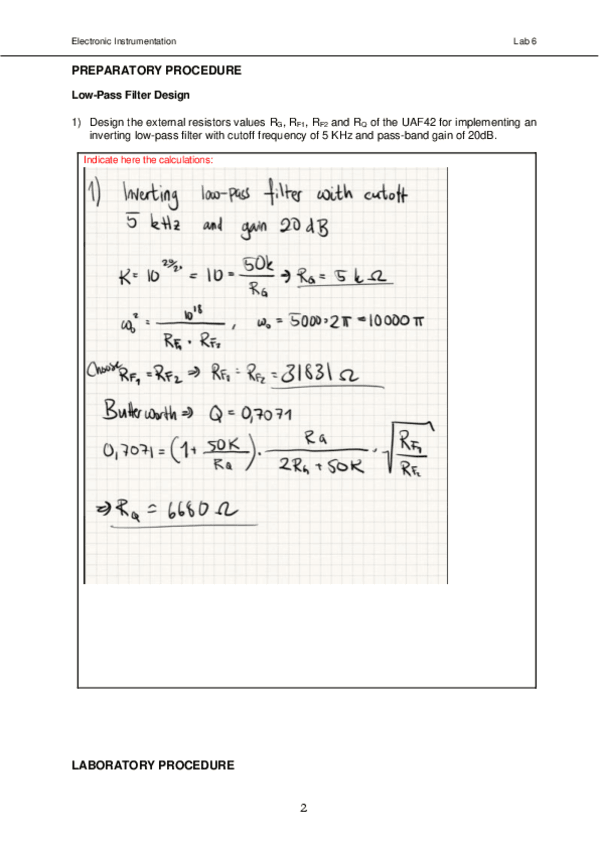 Electronic Instrumentation Lab 6
PREPARATORY PROCEDURE
Low-Pass Filter Design
1) Design the external resistors values RG, RF1, RF2 and RQ of the UAF42 for implementing an
inverting low-pass filter with cutoff frequency of 5 KHz and pass-band gain of 20dB.
Indicate here the calculations:
1) Inverting low-pass filter with cutoff
5 kHz and gain 20 dB
K = 10^(20/20) = 10 = 50k/RG ⇒ RG = 5 kΩ
ω0² = 10^18/(RF1 · RF2), ω0 = 5000·2π = 10000π
Choose RF1 = RF2 ⇒ RF1 = RF2 = 31831 Ω
Butterworth ⇒ Q = 0,7071
0,7071 = (1 + 50K/RQ) · RG/(2RG + 50K) · √(RF1/RF2)
⇒ RQ = 6680 Ω
LABORATORY PROCEDURE
2